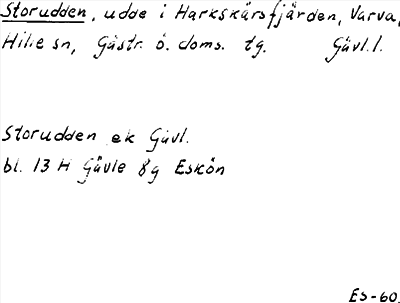 Storudden, udde i Harkskärsfjärden, Varva,
Hille sn, Gästr. ö. doms. tg. Gävl.l.
Storudden ek Gävl.
bl. 13 H Gävle 8g Eskön
ES-60.